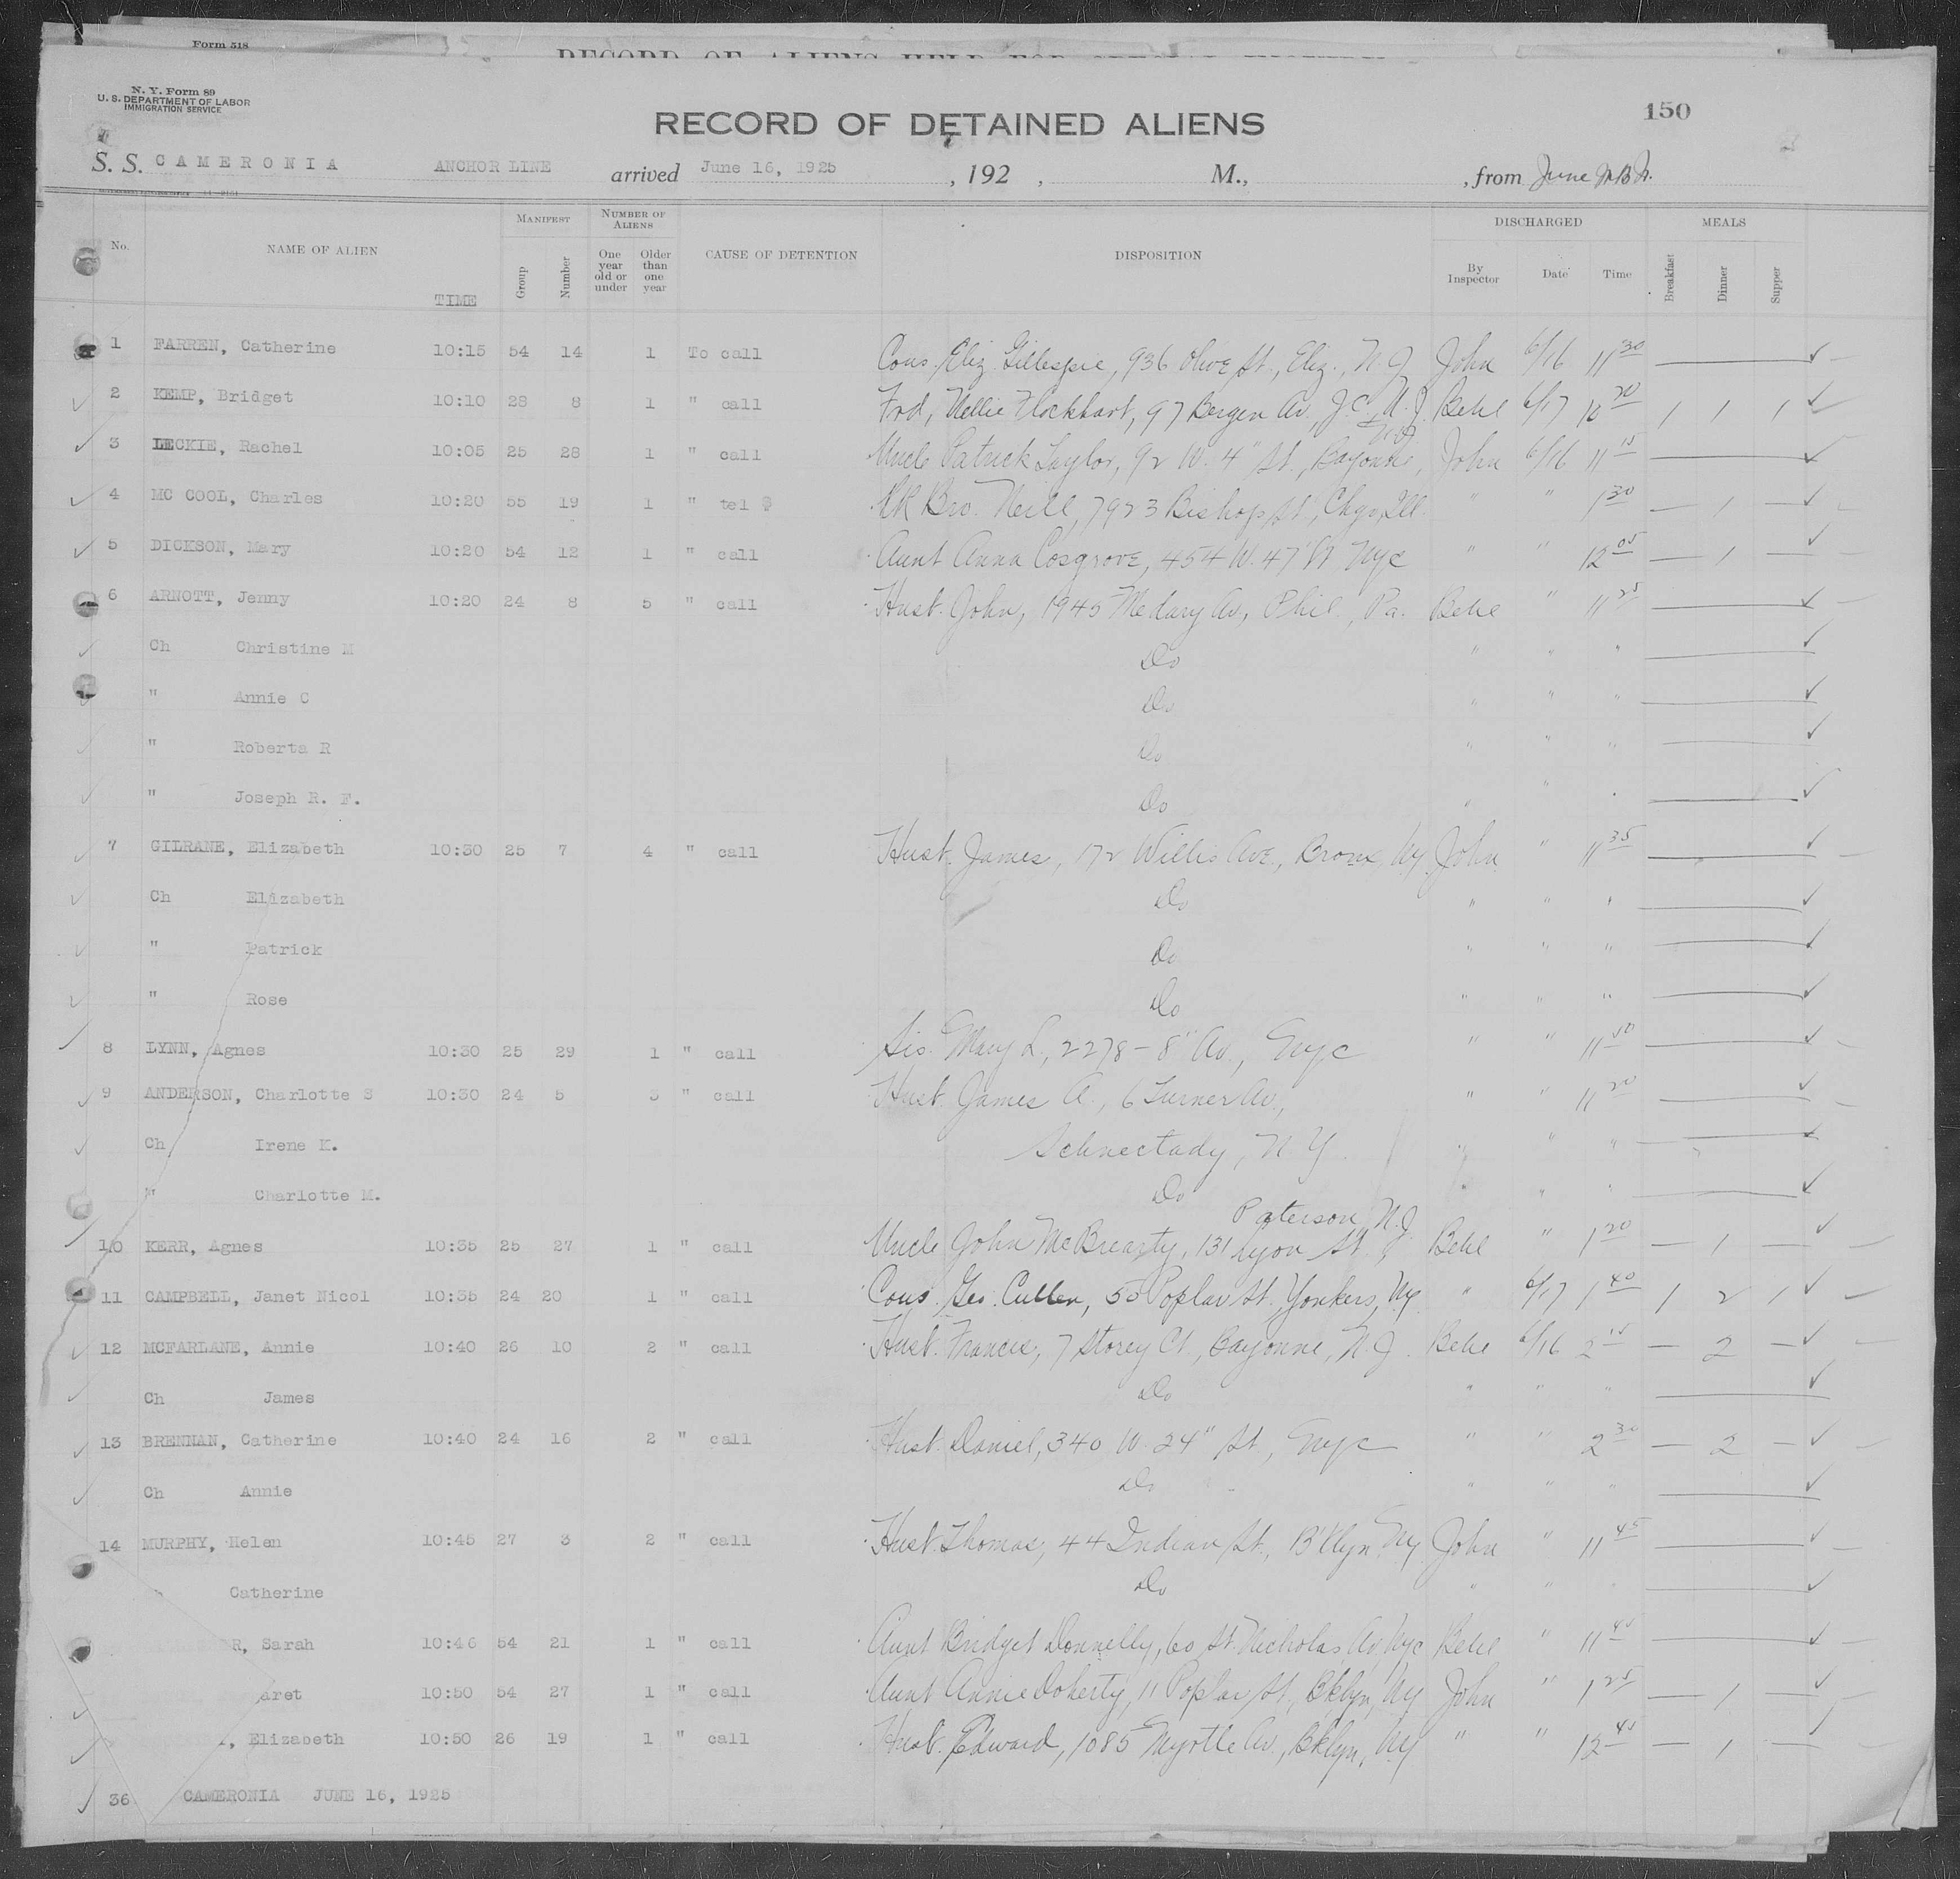 Form 518
RECORD OF ALIENS HELD FOR SPECIAL INQUIRY
N. Y. Form 89
U. S. DEPARTMENT OF LABOR
IMMIGRATION SERVICE
150
RECORD OF DETAINED ALIENS
S. S. CAMERONIA ANCHOR LINE arrived June 16, 1925 , 192 , M., , from June
No. NAME OF ALIEN TIME MANIFEST Group Number NUMBER OF ALIENS One year old or under Older than one year CAUSE OF DETENTION DISPOSITION DISCHARGED By Inspector Date Time MEALS Breakfast Dinner Supper
1 FARREN, Catherine 10:15 54 14 1 To call Cous. Eliz. Gillespie, 936 Olive St., Eliz., N. J John 6/16 11 30
2 KEMP, Bridget 10:10 28 8 1 " call Frd, Nellie Lockhart, 97 Bergen Av, J.C., N. J. Behl 6/17 10 20 1 1 1
3 LECKIE, Rachel 10:05 25 28 1 " call Uncle Patrick Taylor, 92 W. 4" St., Bayonne, John 6/16 11 15
4 MC COOL, Charles 10:20 55 19 1 " tel $ RR Bro. Neill, 7923 Bishop St, Chgo, Ill. " " 1 30 — 1 —
5 DICKSON, Mary 10:20 54 12 1 " call Aunt Anna Cosgrove, 454 W. 47" St Nyc " " 12 05 — 1 —
6 ARNOTT, Jenny 10:20 24 8 5 " call Husb. John, 1945 Medary Av, Phil., Pa. Behl " 11 25
Ch Christine M Do " " "
" Annie C Do " " "
" Roberta R Do " " "
" Joseph R. F. Do " " "
7 GILRANE, Elizabeth 10:30 25 7 4 " call Husb. James, 172 Willis Ave., Bronx, Ny. John " 11 35
Ch Elizabeth Do " " "
" Patrick Do " " "
" Rose Do " " "
8 LYNN, Agnes 10:30 25 29 1 " call Sis. Mary L., 2278 - 8" Av., Nyc " " 11 50
9 ANDERSON, Charlotte S 10:30 24 5 3 " call Husb. James A., 6 Turner Av., " " 11 20
Ch Irene K. Schnectady, N. Y. " " "
" Charlotte M. Do " " "
Paterson, N. J.
10 KERR, Agnes 10:35 25 27 1 " call Uncle John McBrearty, 131 Lyon St., Behl " 1 20 — 1 —
11 CAMPBELL, Janet Nicol 10:35 24 20 1 " call Cous. Geo. Cullen, 50 Poplar St. Yonkers, Ny. " 6/17 1 40 1 2 1
12 MCFARLANE, Annie 10:40 26 10 2 " call Husb. Francis, 7 Storey Ct., Bayonne, N. J. Behl 6/16 2 15 — 2 —
Ch James Do " " "
13 BRENNAN, Catherine 10:40 24 16 2 " call Husb. Daniel, 340 W. 24" St., Nyc " " 2 30 — 2 —
Ch Annie Do " " "
14 MURPHY, Helen 10:45 27 3 2 " call Husb. Thomas, 44 Indian St., B'klyn Ny John " 11 45
Catherine Do " " "
R, Sarah 10:46 54 21 1 " call Aunt Bridget Donnelly, 60 St. Nicholas Av, Nyc Behl " 11 45
aret 10:50 54 27 1 " call Aunt Annie Doherty, 11 Poplar St., Bklyn, Ny John " 1 25 — 1 —
, Elizabeth 10:50 26 19 1 " call Husb. Edward, 1085 Myrtle Av., Bklyn, Ny " " 12 45 — 1 —
36 CAMERONIA JUNE 16, 1925